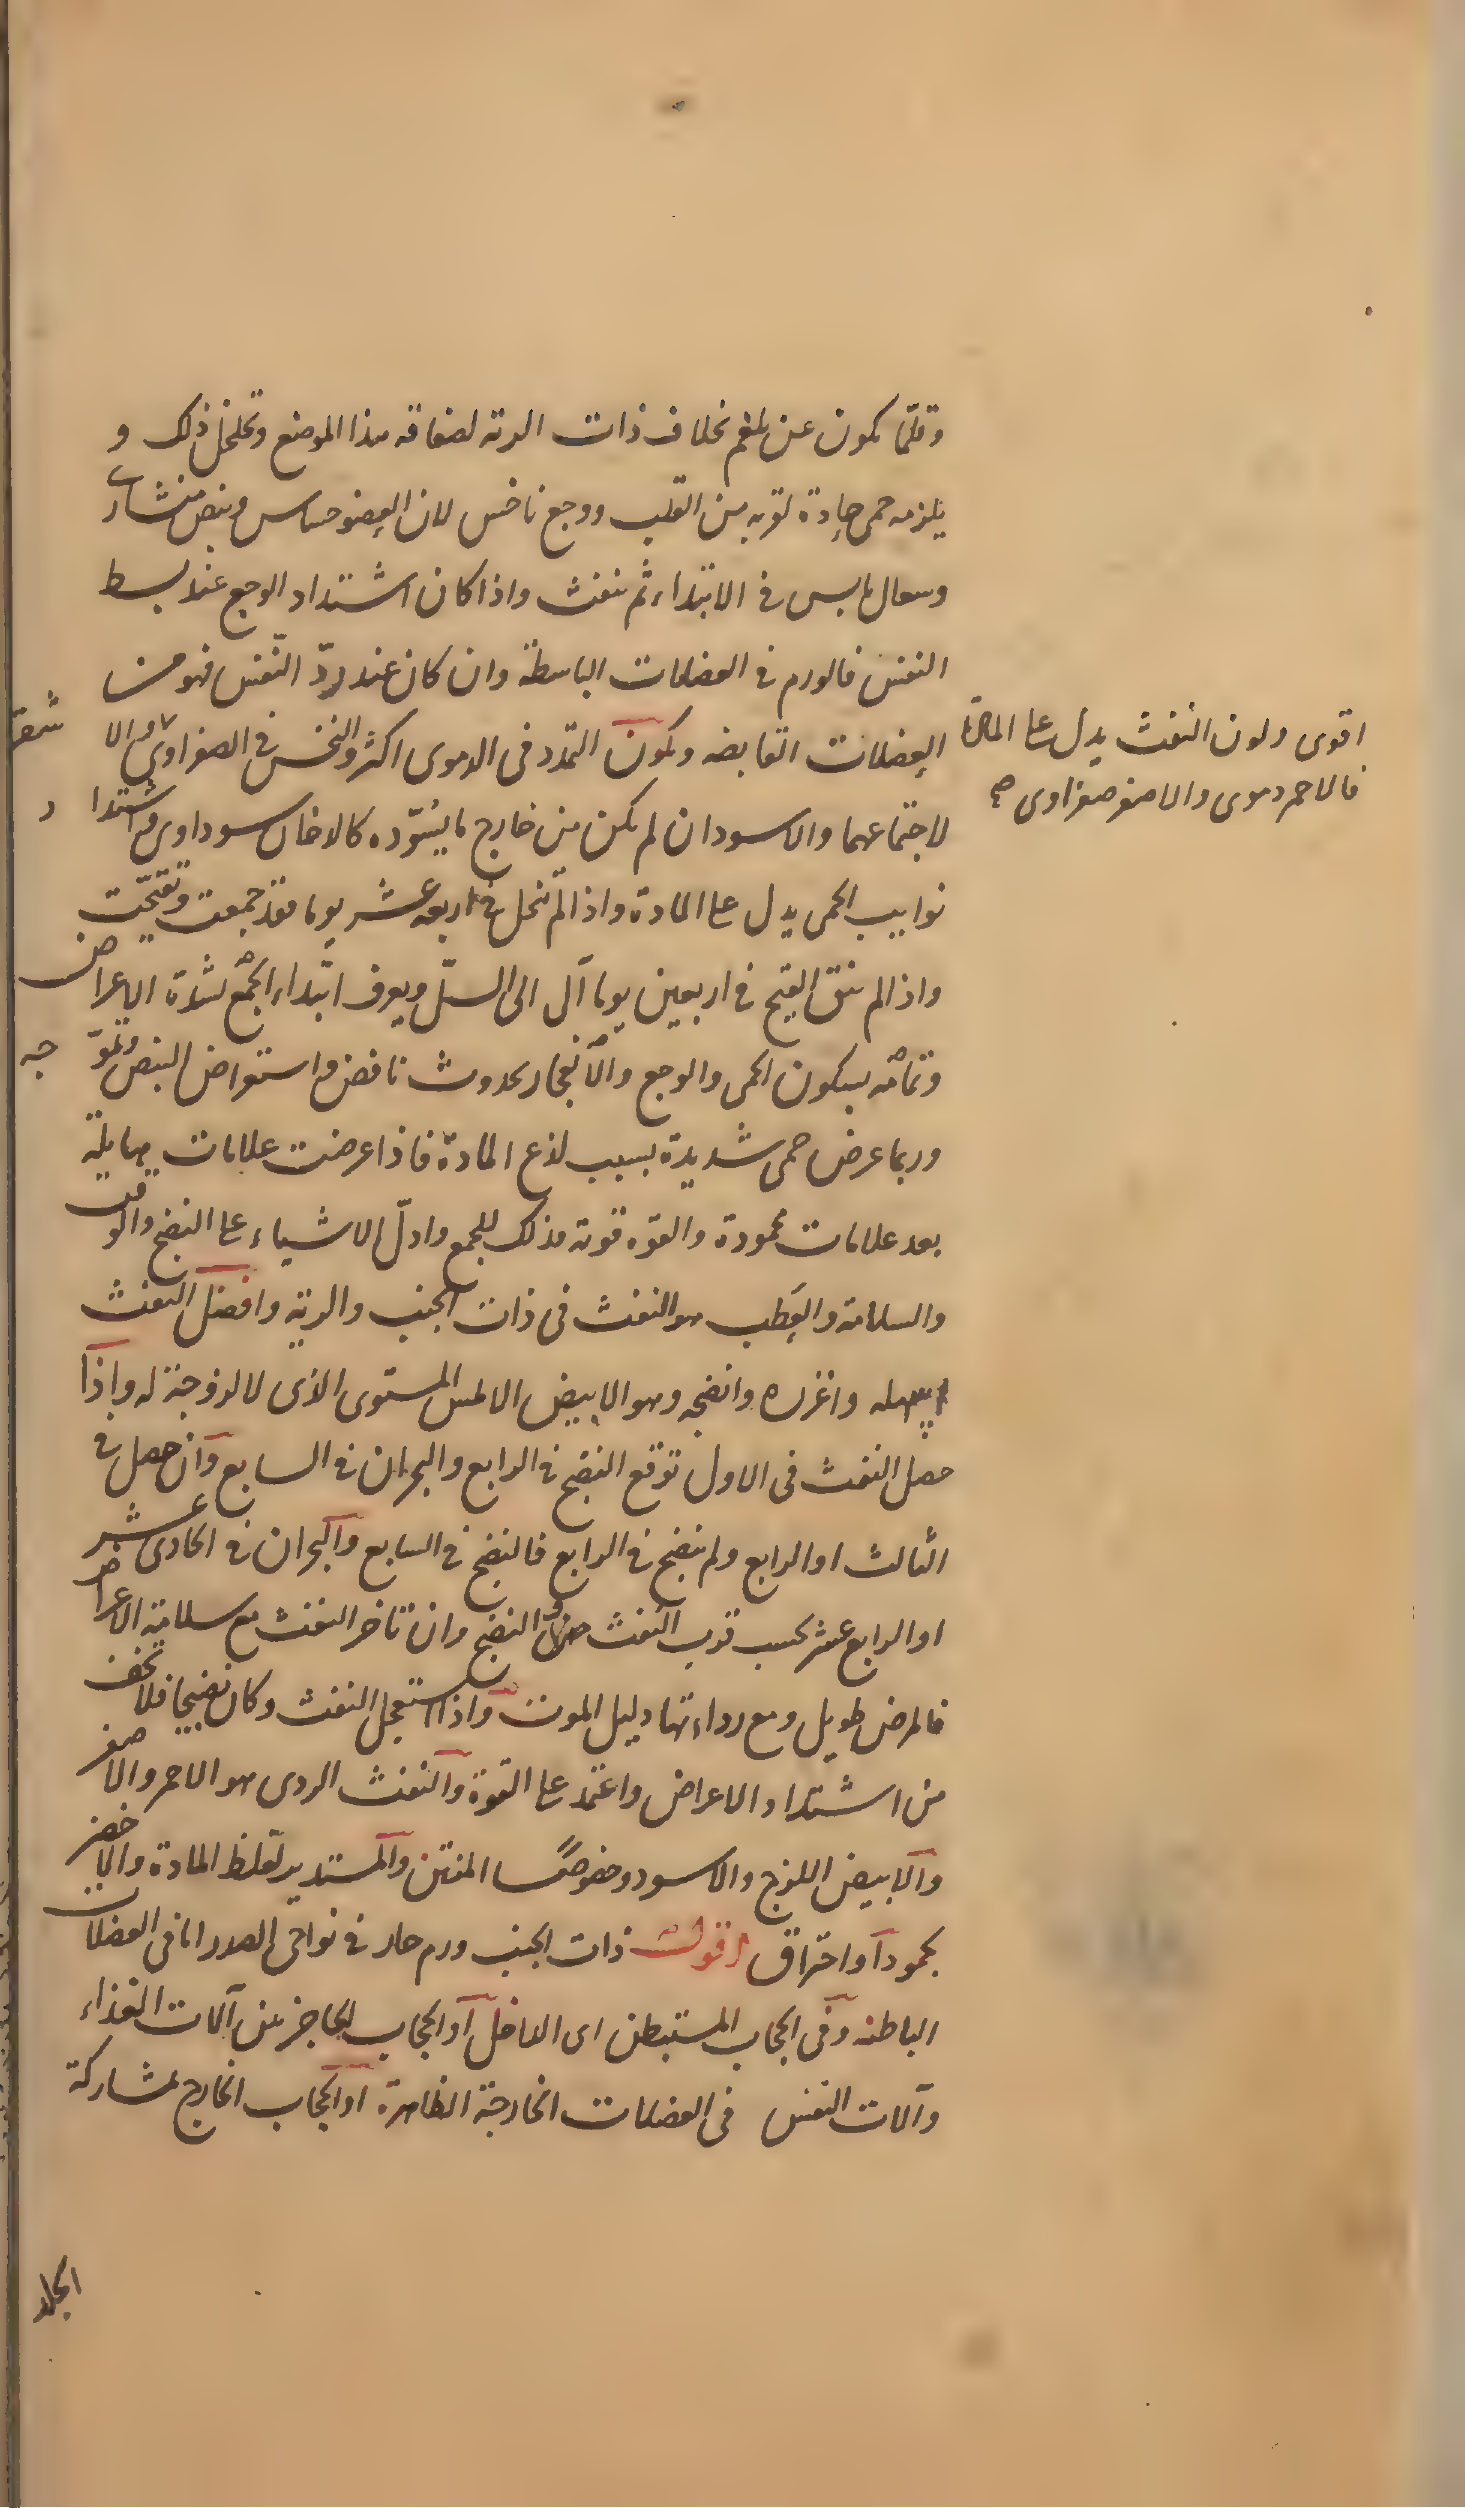 وقلّما يكون عن بلغم بخلاف ذات الرئة لصفاقة هذا الموضع وتخلخل ذلك و
يلزمه حمى حادة لقربه من القلب ووجع ناخس لان العضو حساس ونبض منشارى
وسعال يابس فى الابتداء ثم ينفث واذا كان اشتداد الوجع عند بسط
النفس فالورم فى العضلات الباسطة وان كان عند ردّ النّفس فهو من
العضلات القابضه ويكون التمدد فى الدموى اكثر والنخس فى الصفراوى
اقوى ولون النفث يدل على المادة
فالاحمر دموى والاصفر صفراوى صح
والاشقر
لاجتماعهما والاسود ان لم يكن من خارج ما يسوّده كالدخان سوداوى واشتداد
نوايب الحمى يدل على المادة واذا لم تنحل فى اربعة عشر يوما فقد جمعت وتقيّحت
واذا لم ينق القيح فى اربعين يوما آل الى السلّ ويعرف ابتداء الجمع بشدة الاعراض
وتمامه بسكون الحمى والوجع والانفجار بحدوث نافض واستعراض النبض وتموّجه
وربما عرض حمى شديدة بسبب لذع المادة فاذا عرضت علامات هايلة
بعد علامات محمودة والقوه قوية فذلك للجمع وادلّ الاشياء على النضج والوقت
والسلامة والعطب هو النفث فى ذات الجنب والرية وافضل النفث
اسهله واغزره وانضجه وهو الابيض الاملس المستوى الذى لا لزوجة له واذا
حصل النفث فى الاول توقع النضج فى الرابع والبحران فى السابع وان حصل فى
الثالث او الرابع ولم ينضج فى الرابع فالنضج فى السابع والبحران فى الحادى عشر
او الرابع عشر بحسب قرب النفث من النضج وان تاخر النفث مع سلامة الاعراض
فالمرض طويل ومع رداءتها دليل الموت واذا استعجل النفث وكان نضيجا فلا تخف
من اشتداد الاعراض واعتمد على القوة والنفث الردى هو الاحمر والاصفر
والابيض اللزج والاسود وخصوصًا المنتن والمستدير لغلظ المادة والاخضر
لجمود او احتراق اقول ذات الجنب ورم حار فى نواحى الصدر اما فى العضلات
الباطنه وفى الحجاب المستبطن اى الداخل او الحجاب الحاجز بين آلات الغذاء
وآلات النفس فى العضلات الخارجة الظاهرة او الحجاب الخارج بمشاركة
الجلد